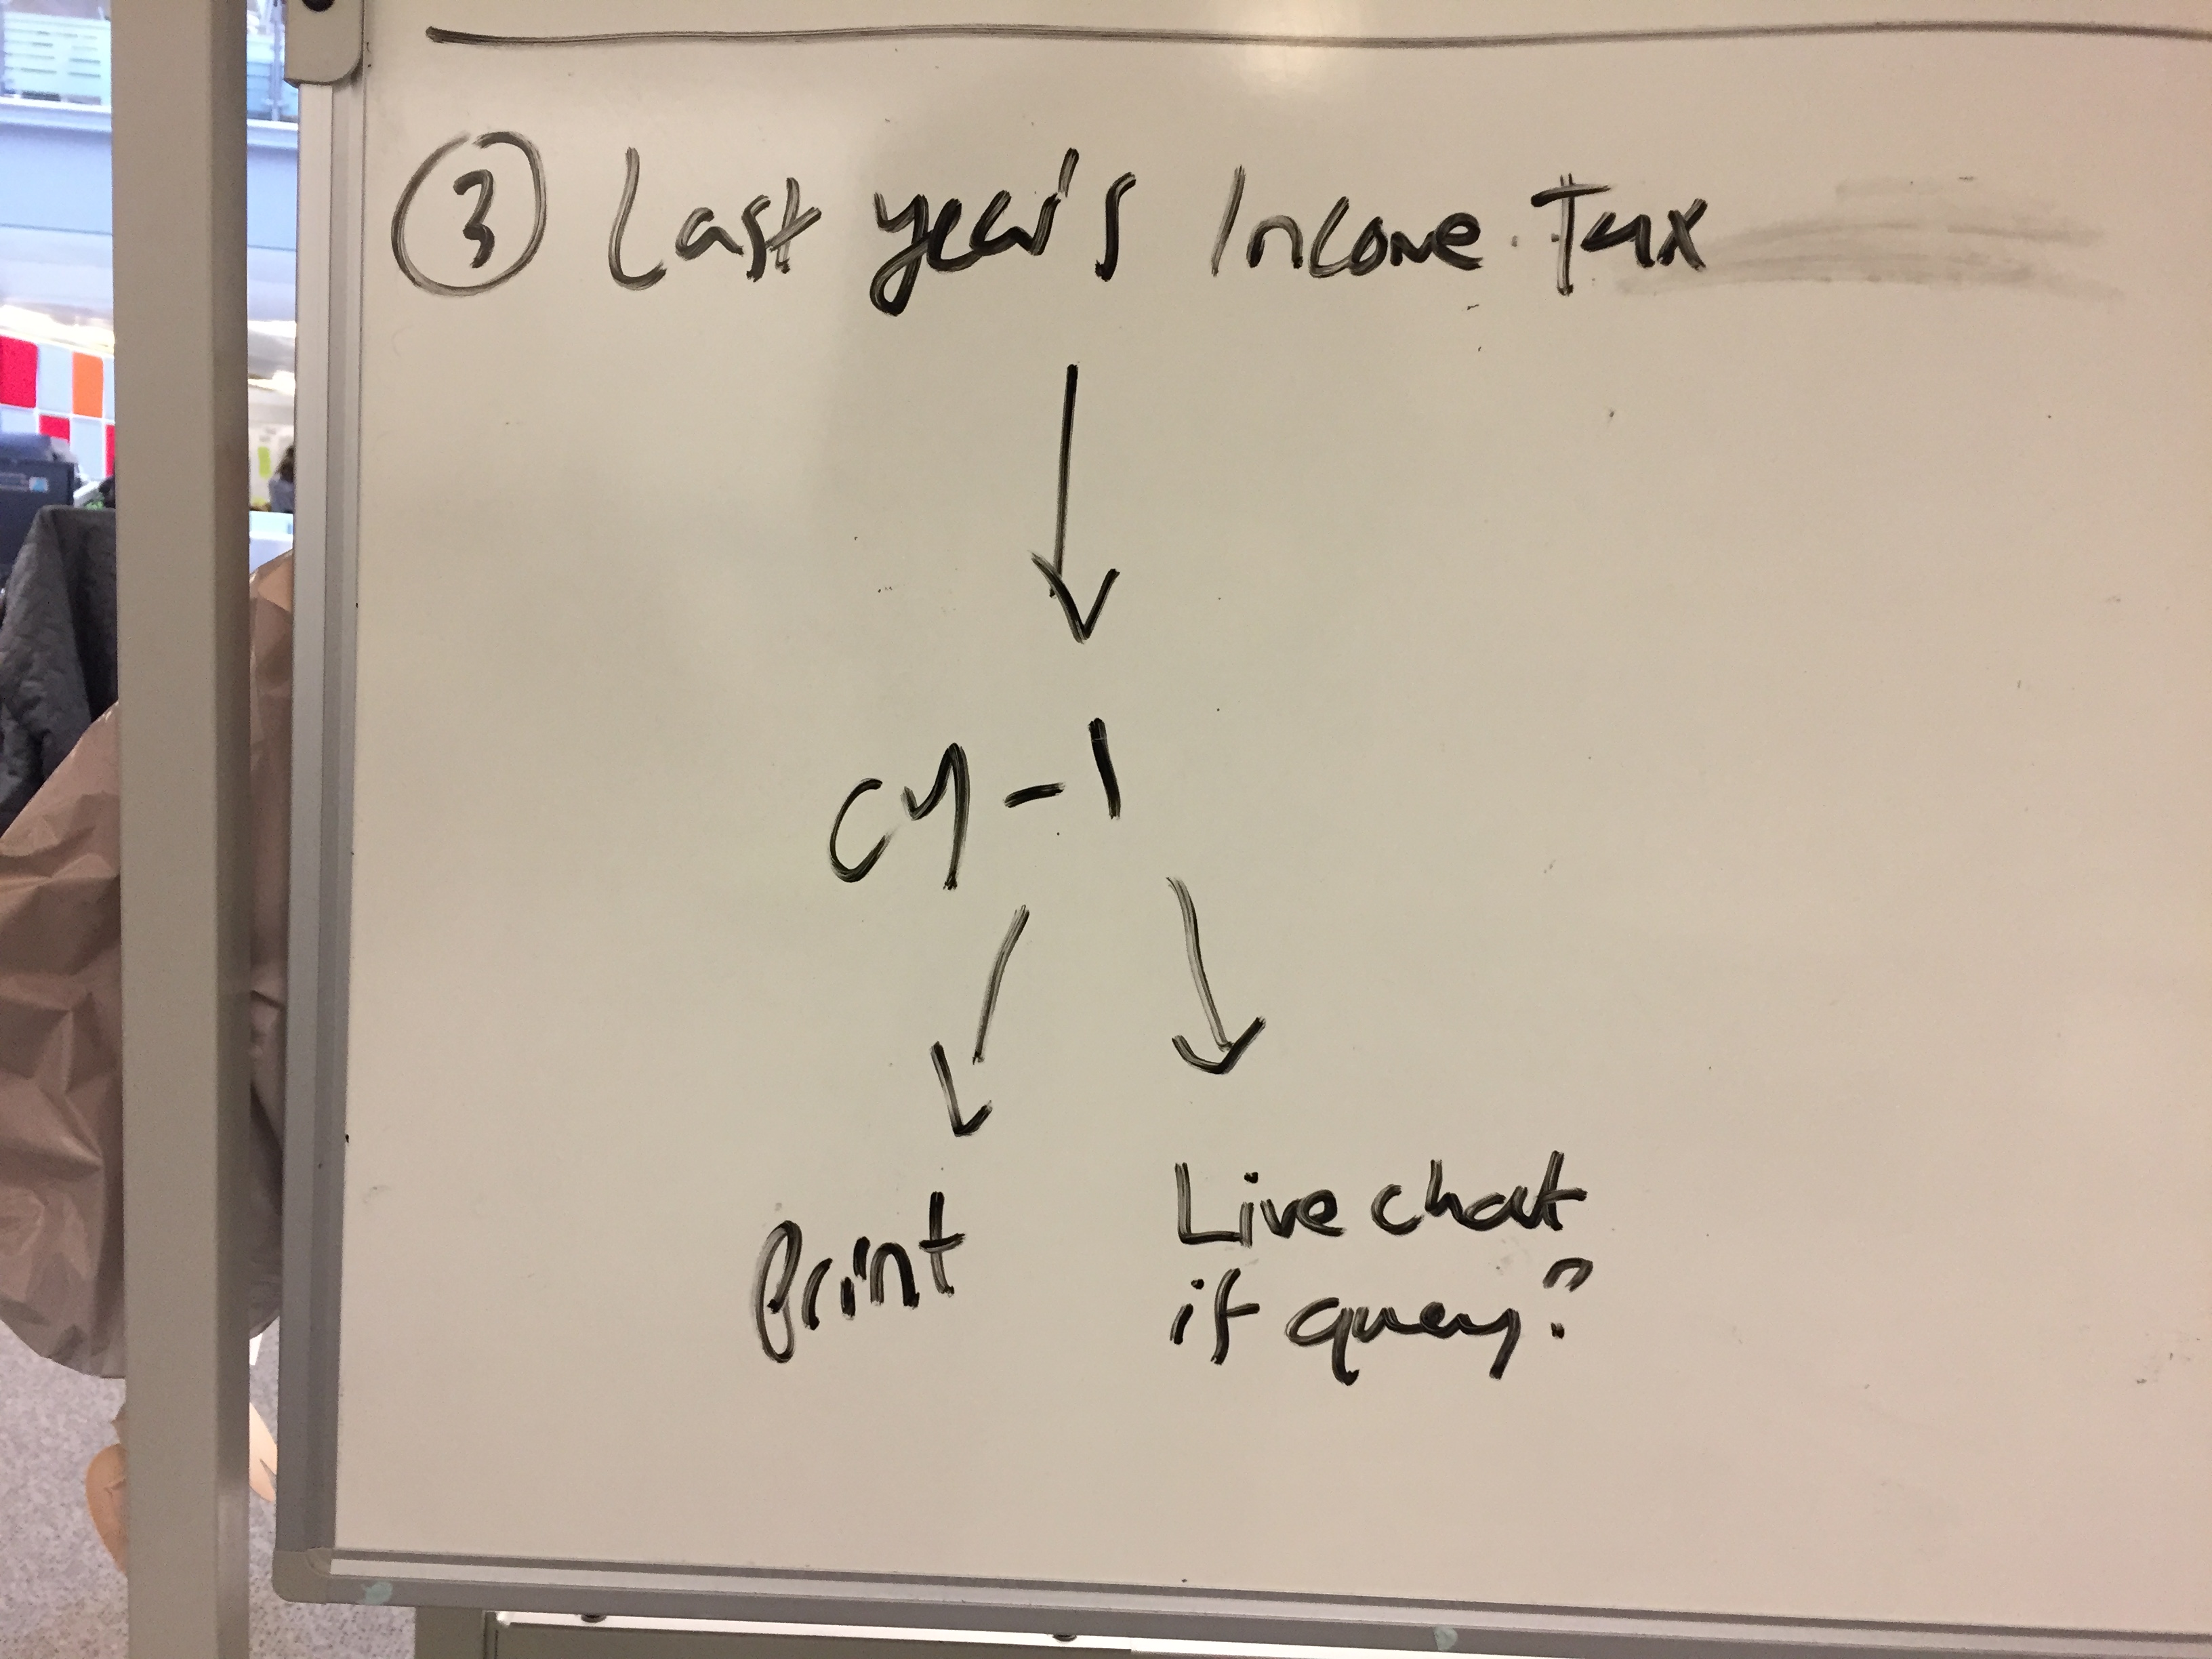 3 Last year's Income Tax
CY-1
Print
Live chat
if query?